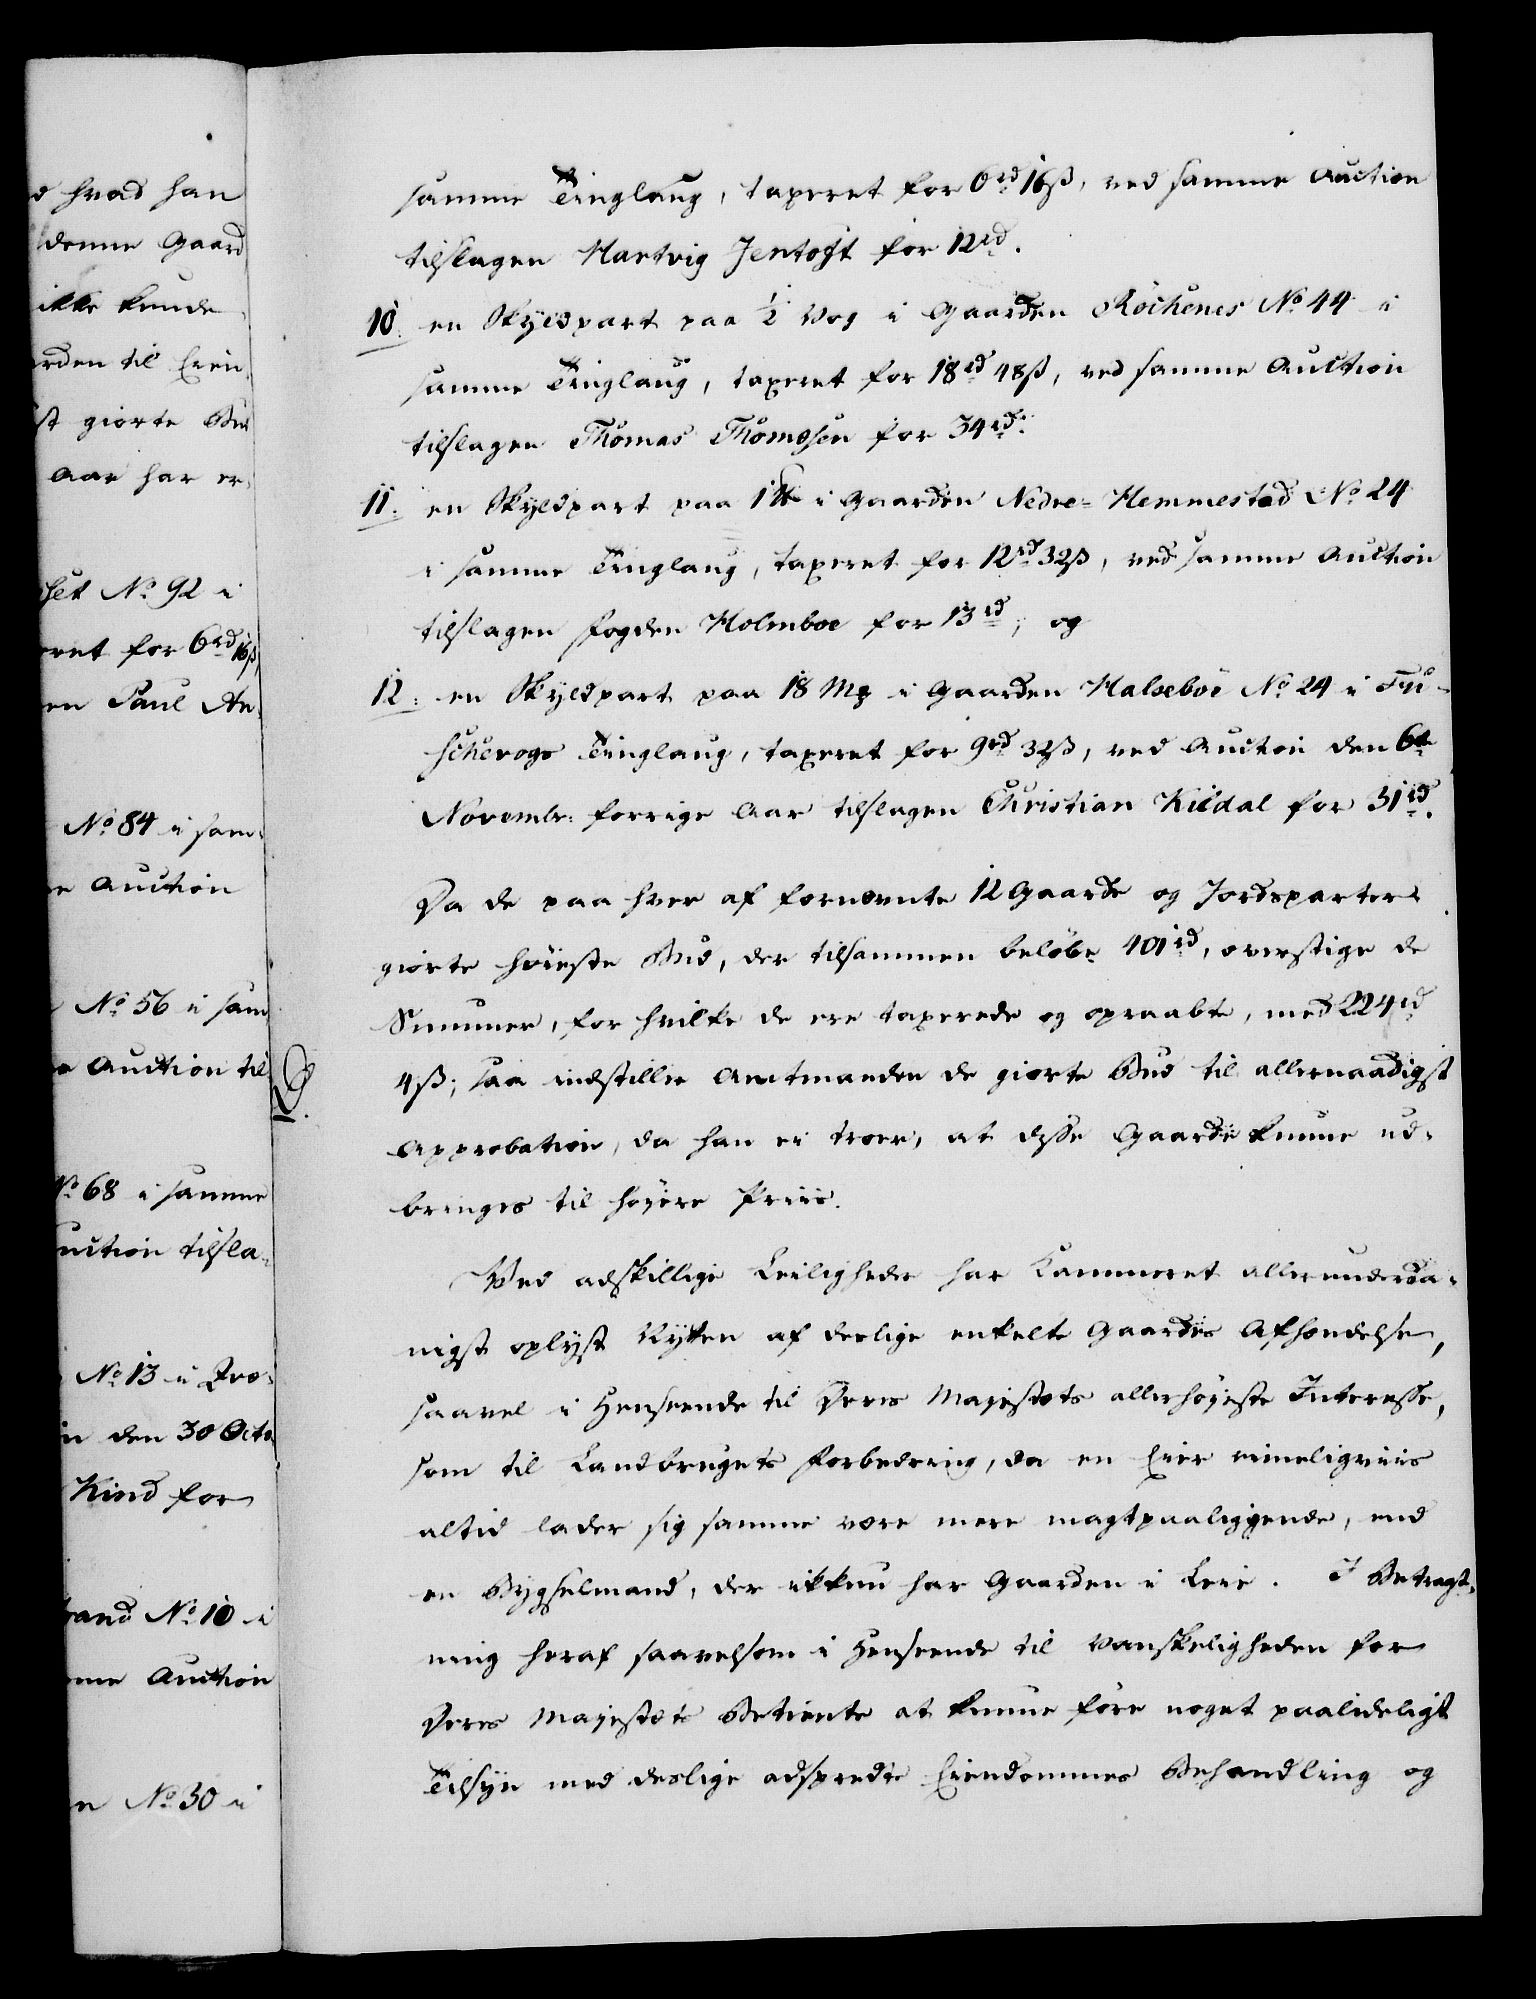 d hvad han
denne Gaard
ikke kunde
rden til Eien
st giorte Bud
Aar har er-
set No 92 i
eret for 6rd 16ß,
en Paul An-
No 84 i sam-
e Auction
No 56 i sam
e Auction til
No 68 i samme
uction tilsla-
No 13 i Tro-
in den 30 Octo
Kind for
rand No 10 i
me Auction
e No 30 i
samme Tinglaug, taxeret for 6rd 16ß, ved samme Auction
tilslagen Hartvig Jentoft for 12rd.
10. en Skyldpart paa ½ Vog i Gaarden Röckenes No 44 i
samme Tinglaug, taxeret for 18rd 48ß, ved samme Auction
tilslagen Thomas Thomesen for 34rd.
11. en Skyldpart paa 1 ℔ i Gaarden Nedre-Hemmestad No 24
i samme Tinglaug, taxeret for 12rd 32ß, ved samme Auction
tilslagen Fogden Holmboe for 13rd; og
12. en Skyldpart paa 18 Mꝝ i Gaarden Halseboe No 24 i Fu-
schevogs Tinglaug, taxeret for 9rd 32ß, ved Auction den 6te
Novembr: forrige Aar tilslagen Christian Kildal for 31rd.
Da de paa hver af fornevnte 12 Gaarde og Jordsparter
giorte høieste Bud, der tilsammen beløbe 401rd, overstige de
Summer, for hvilke de ere taxerede og opraabte, med 224rd
4ß; saa indstiller Amtmanden de giorte Bud til allernaadigst
Approbation, da han ei troer, at disse Gaarde kunne ud-
bringes til høyere Priis.
Ved adskillige Leiligheder har Kammeret allerunderda-
nigst oplyst Nytten af deslige enkelte Gaardes Afhændelse,
saavel i Henseende til Deres Majestæts allerhøyeste Interesse,
som til Landbrugets Forbedring, da en Eier rimeligviis
altid lader sig samme være mere magtpaaliggende, end
en Bygselmand, der ikkun har Gaarden i Leie. I Betragt-
ning heraf saavelsom i Henseende til Vanskeligheden for
Deres Majestæts Betiente at kunne føre noget paalideligt
Tilsyn med deslige adspredte Eiendommes Behandling og